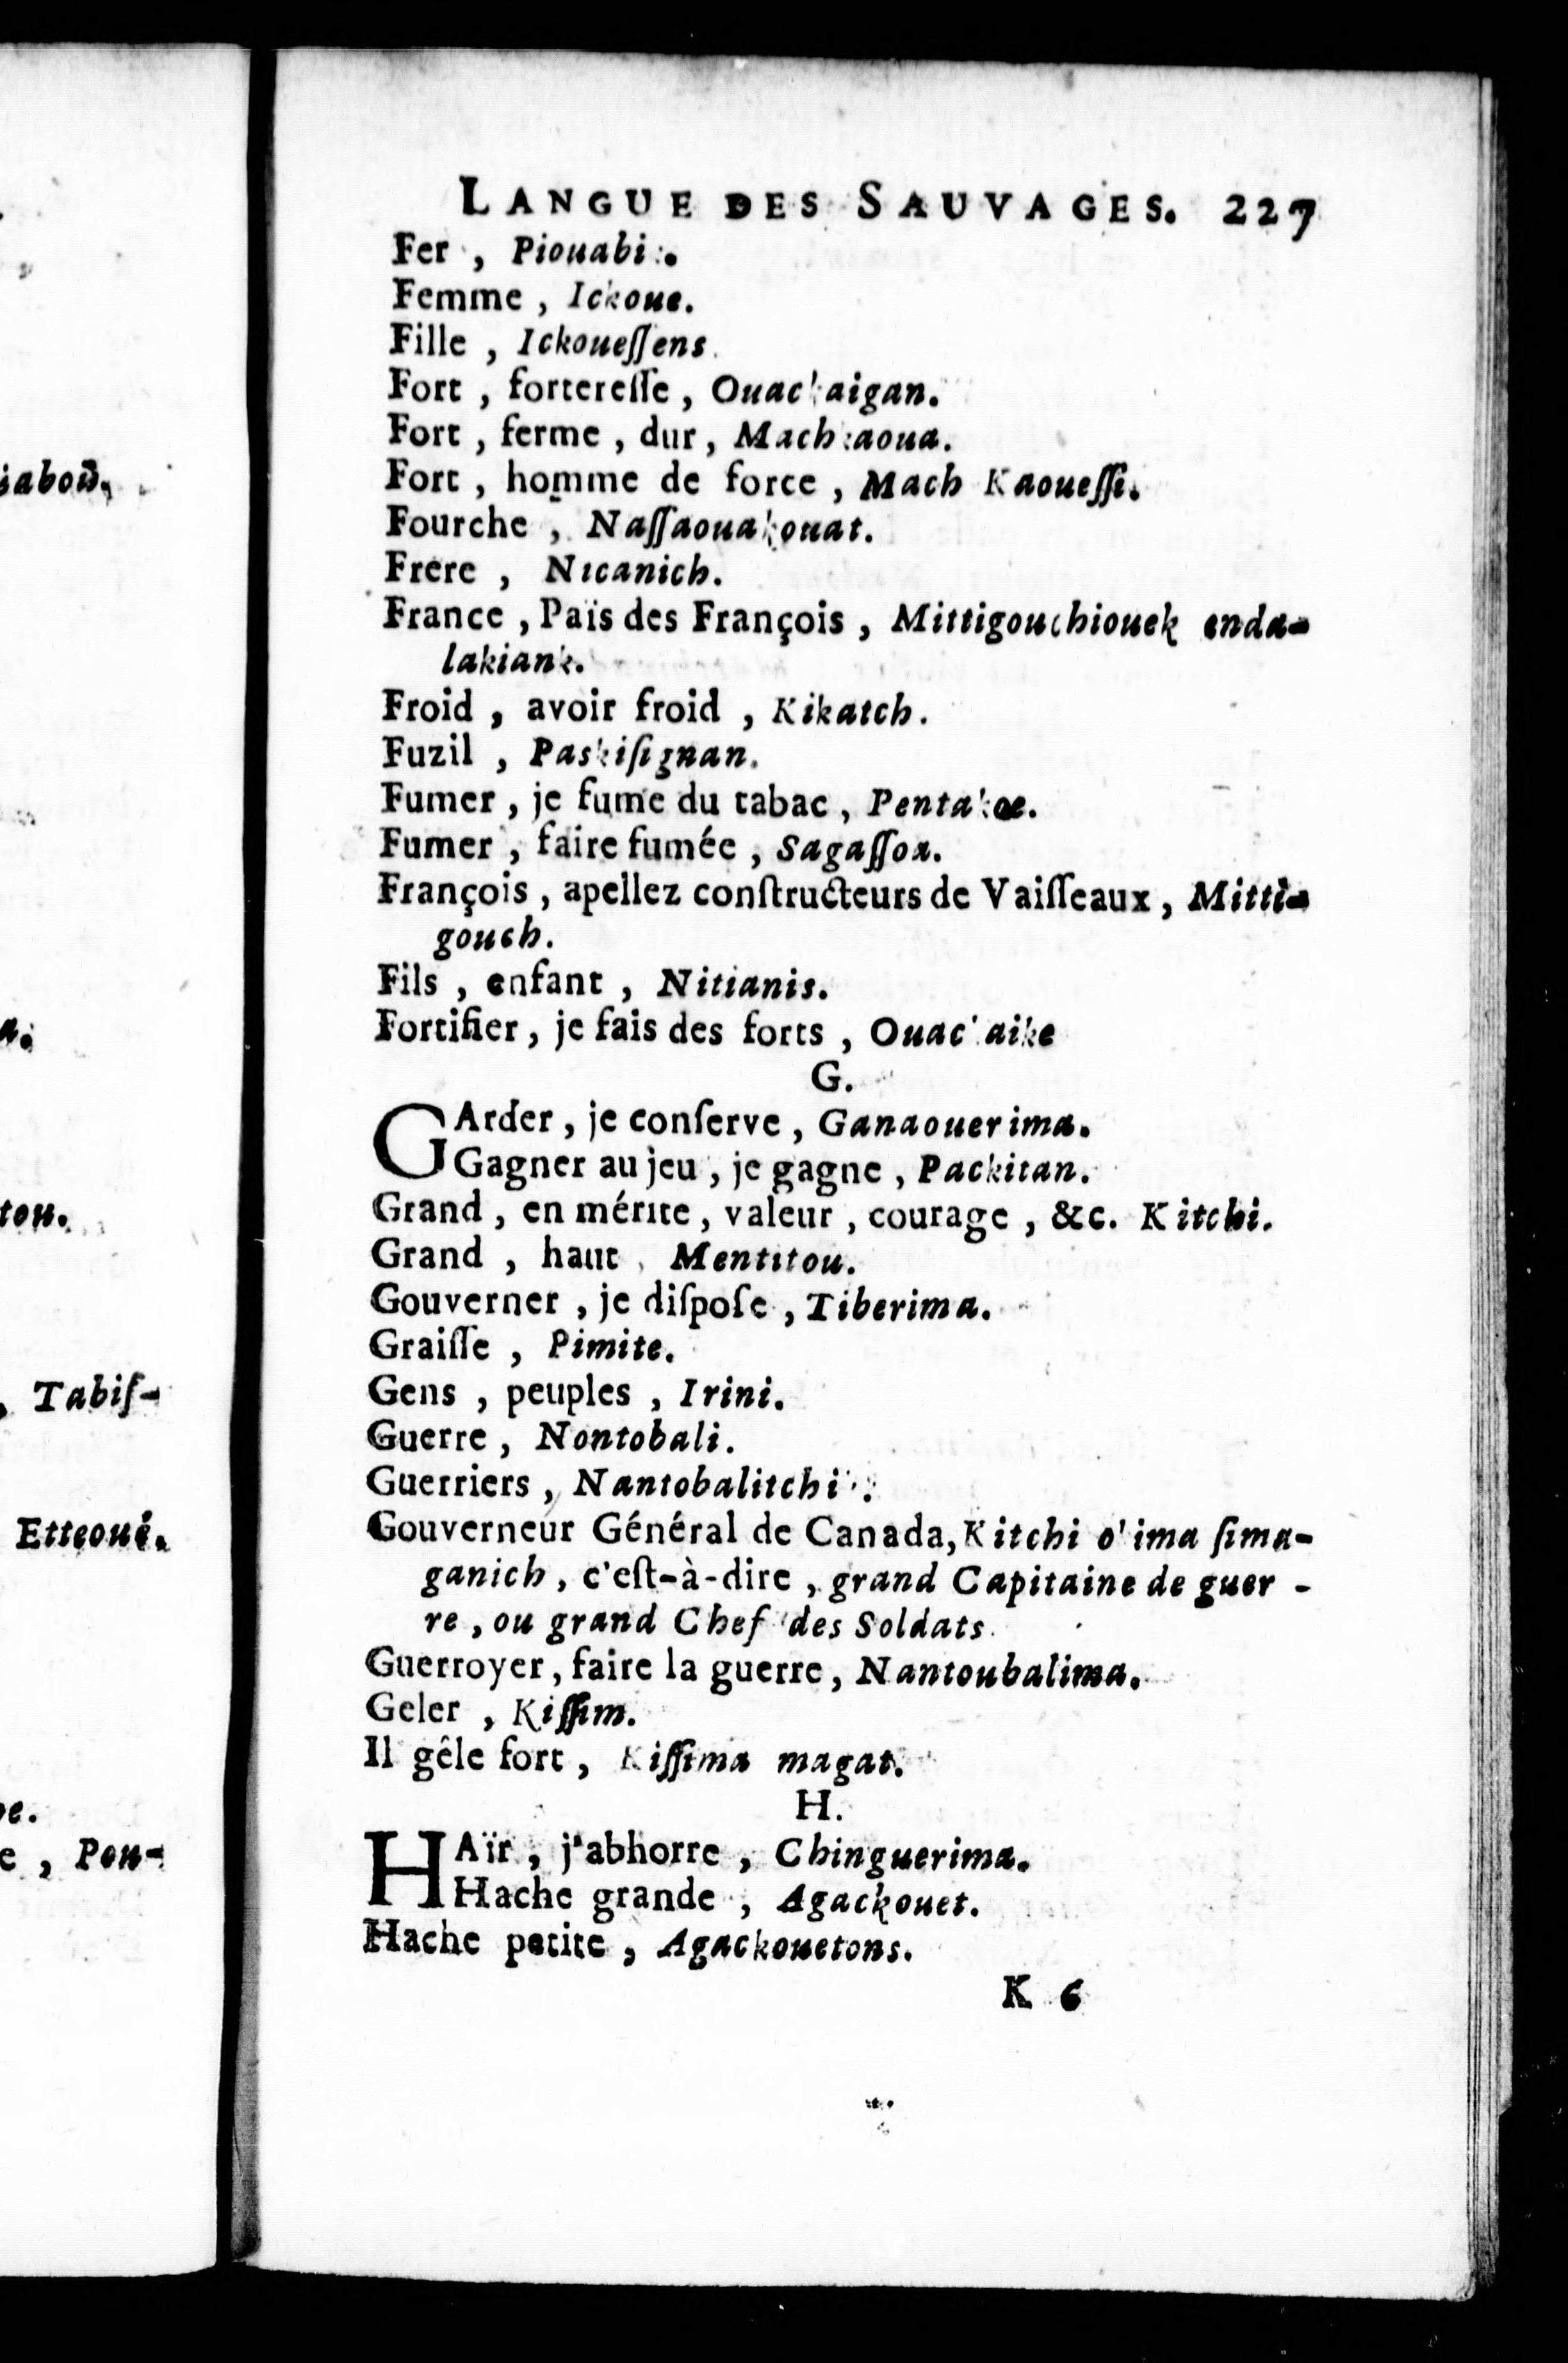 LANGUE DES SAUVAGES. 227
Fer, Piouabi.
Femme, Ickoue.
Fille, Ickoueſſens.
Fort, fortereſſe, Ouackaigan.
Fort, ferme, dur, Machkaoua.
Fort, homme de force, Mach Kaoueſſi.
Fourche, Naſſaouakouat.
Frere, Nicanich.
France, Païs des François, Mittigouchiouek enda-
lakiank.
Froid, avoir froid, Kikatch.
Fuzil, Paskiſignan.
Fumer, je fume du tabac, Pentakoe.
Fumer, faire fumée, Sagaſſoa.
François, apellez conſtructeurs de Vaiſſeaux, Mitti-
gouch.
Fils, enfant, Nitianis.
Fortifier, je fais des forts, Ouackaike
G.
GArder, je conſerve, Ganaouerima.
Gagner au jeu, je gagne, Packitan.
Grand, en mérite, valeur, courage, &c. Kitchi.
Grand, haut, Mentitou.
Gouverner, je diſpoſe, Tiberima.
Graiſſe, Pimite.
Gens, peuples, Irini.
Guerre, Nontobali.
Guerriers, Nantobalitchik.
Gouverneur Général de Canada, Kitchi okima ſima-
ganich, c'eſt-à-dire, grand Capitaine de guer-
re, ou grand Chef des Soldats.
Guerroyer, faire la guerre, Nantoubalima.
Geler, Kiſſim.
Il gêle fort, Kiſſima magat.
H.
HAïr, j'abhorre, Chinguerima.
Hache grande, Agackouet.
Hache petite, Agackouetons.
K 6
iabou.
tou.
, Tabiſ-
Etteoué.
e, Pou-